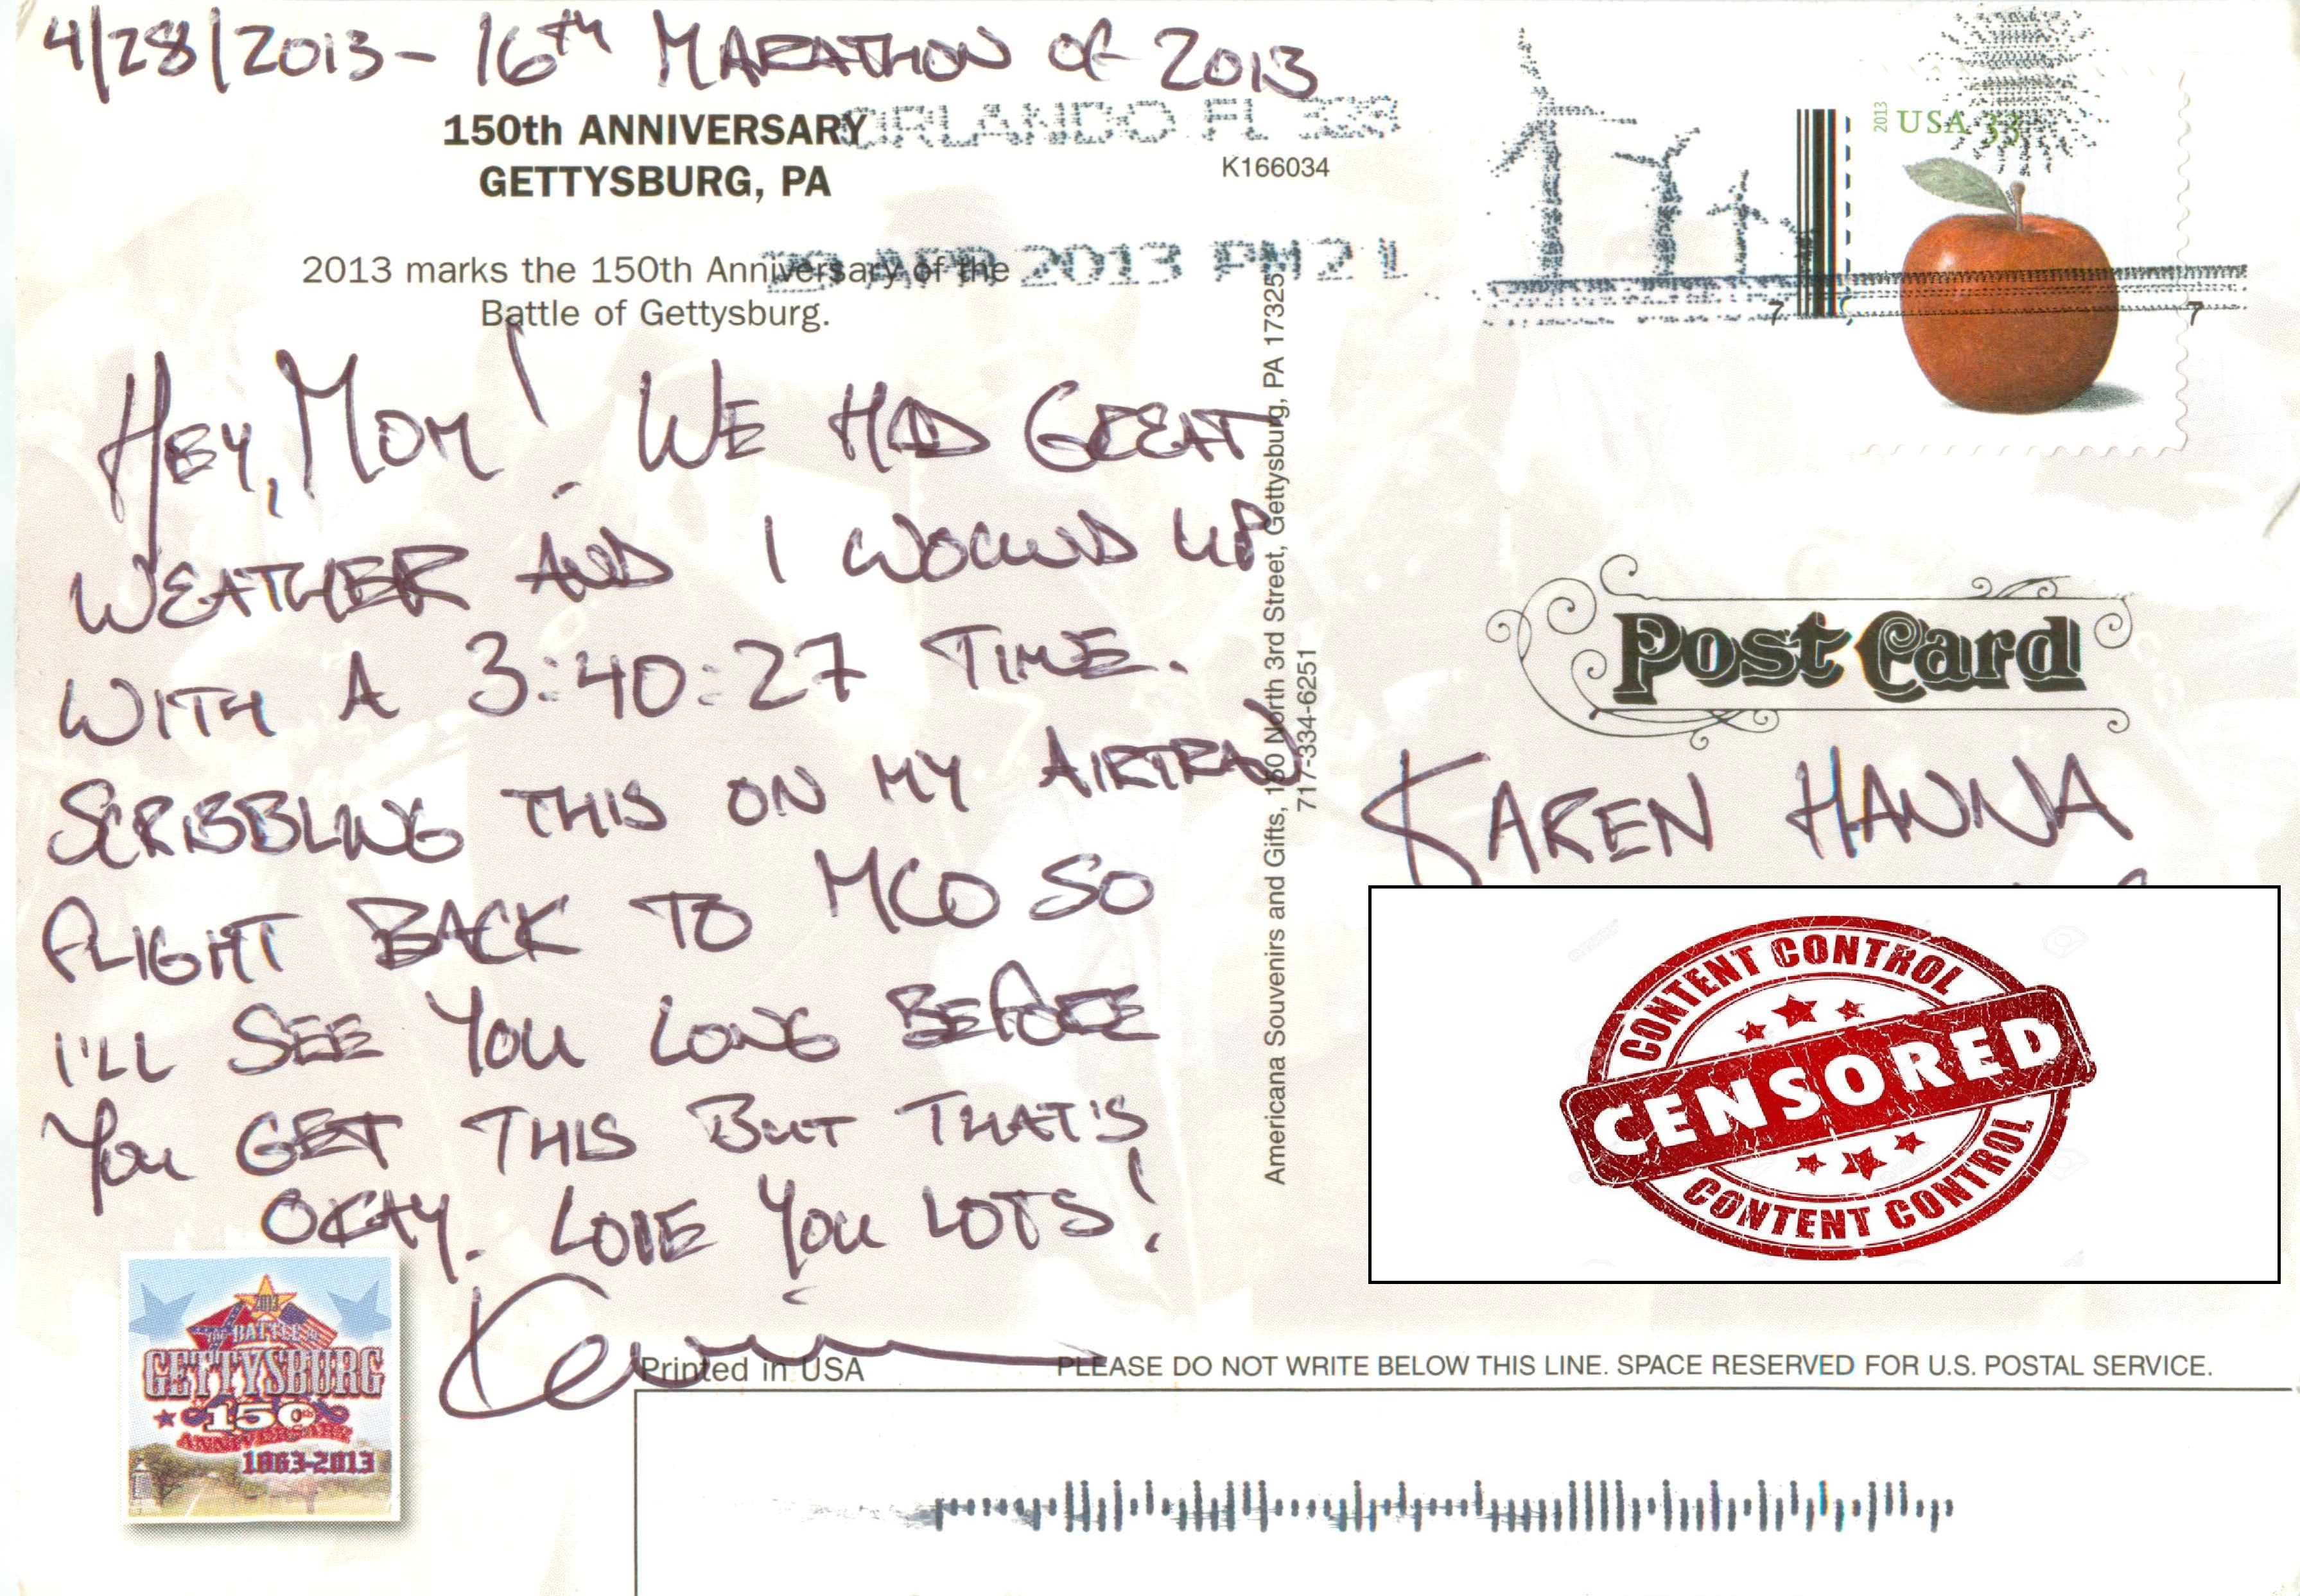 4/28/2013 - 16th MARATHON OF 2013
150th ANNIVERSARY
GETTYSBURG, PA
ORLANDO FL 328
K166034
2013 marks the 150th Anniversary of the
Battle of Gettysburg.
29 APR 2013 PM 2 L
2013 USA 33
7 7
HEY, MOM! WE HAD GREAT
WEATHER AND I WOUND UP
WITH A 3:40:27 TIME.
SCRIBBLING THIS ON MY AIRTRAN
FLIGHT BACK TO MCO SO
I'LL SEE YOU LONG BEFORE
YOU GET THIS BUT THAT'S
OKAY. LOVE YOU LOTS!
Kevin
Americana Souvenirs and Gifts, 150 North 3rd Street, Gettysburg, PA 17325
717-334-6251
Post Card
KAREN HANNA
CONTENT CONTROL
CENSORED
CONTENT CONTROL
2013
THE BATTLE OF
GETTYSBURG
150th
ANNIVERSARY
1863-2013
Printed in USA
PLEASE DO NOT WRITE BELOW THIS LINE. SPACE RESERVED FOR U.S. POSTAL SERVICE.